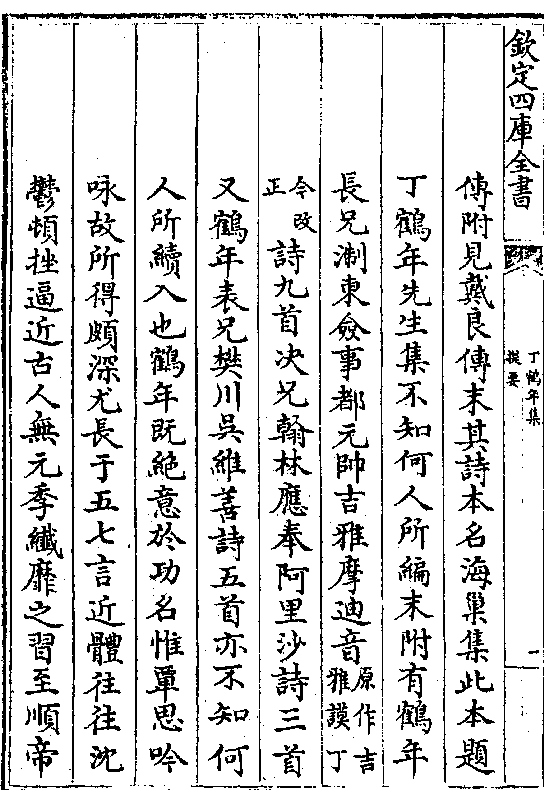 欽定四庫全書
丁鶴年集
提要
一
傳附見戴良傳末其詩本名海巢集此本題
丁鶴年先生集不知何人所編末附有鶴年
長兄淛東僉事都元帥吉雅摩迪音原作吉雅謨丁
今改正詩九首次兄翰林應奉阿里沙詩三首
又鶴年表兄樊川吳維善詩五首亦不知何
人所續入也鶴年既絶意於功名惟覃思吟
咏故所得頗深尤長于五七言近體往往沈
鬱頓挫逼近古人無元季纖靡之習至順帝